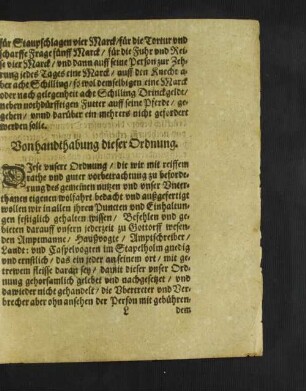 für Staupschlagen vier Marck/für die Tortur vnd
scharffe Frage fünff Marck / für die Fuhr vnd Rei-
se vier Marck / vnd dann auff seine Person zur Zeh-
rung jedes Tages eine Marck / auff den Knecht a-
ber acht Schilling / so wol demselbigen eine Marck
oder nach gelegenheit acht Schilling Drinckgeldt/
neben nothdürfftigen Futter auff seine Pferde / ge-
geben / vnnd darüber ein mehrers nicht gefordert
werden solle.
Von handthabung dieser Ordnung.
DIese vnsere Ordnung / die wir mit reiffem
rathe vnd guter vorbetrachtung zu beforde-
rung des gemeinen nutzen vnd vnser Vnter-
thanen eigenen wolfahrt bedacht vnd außgefertigt
wollen wir in allen ihren Puncten vnd Einhaltun-
gen festiglich gehalten wissen / Befehlen vnd ge-
bieten darauff vnsern jederzeit zu Gottorff wesen-
den Amptmanne / Haußvogte / Amptschreiber/
Landt: vnd Caspelvogten im Stapelholm gnedig
vnd ernstlich / das ein jeder an seinem ort / mit ge-
trewem fleisse daran sey / damit dieser vnser Ord-
nung gehorsamlich gelebet vnd nachgesetzet / vnd
dawieder nicht gehandelt / die Vbertreter vnd Ver-
brecher aber ohn ansehen der Person mit gebühren-
L dem